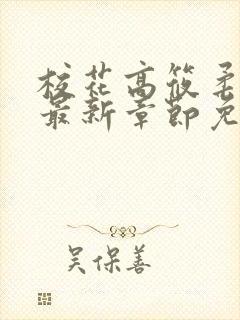 校花高筱柔
最新章節免
吴保善